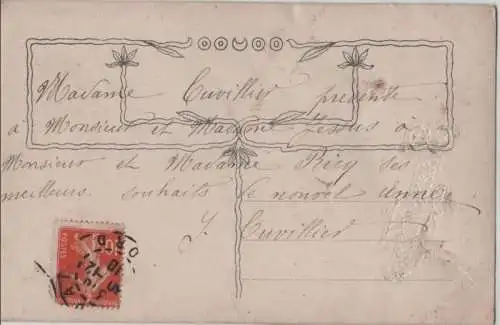 Madame Cuvillier presente
à Monsieur et Madame Lessus à
Monsieur et Madame Bicq ses
meilleurs souhaits de nouvel Année
J Cuvillier
POSTES